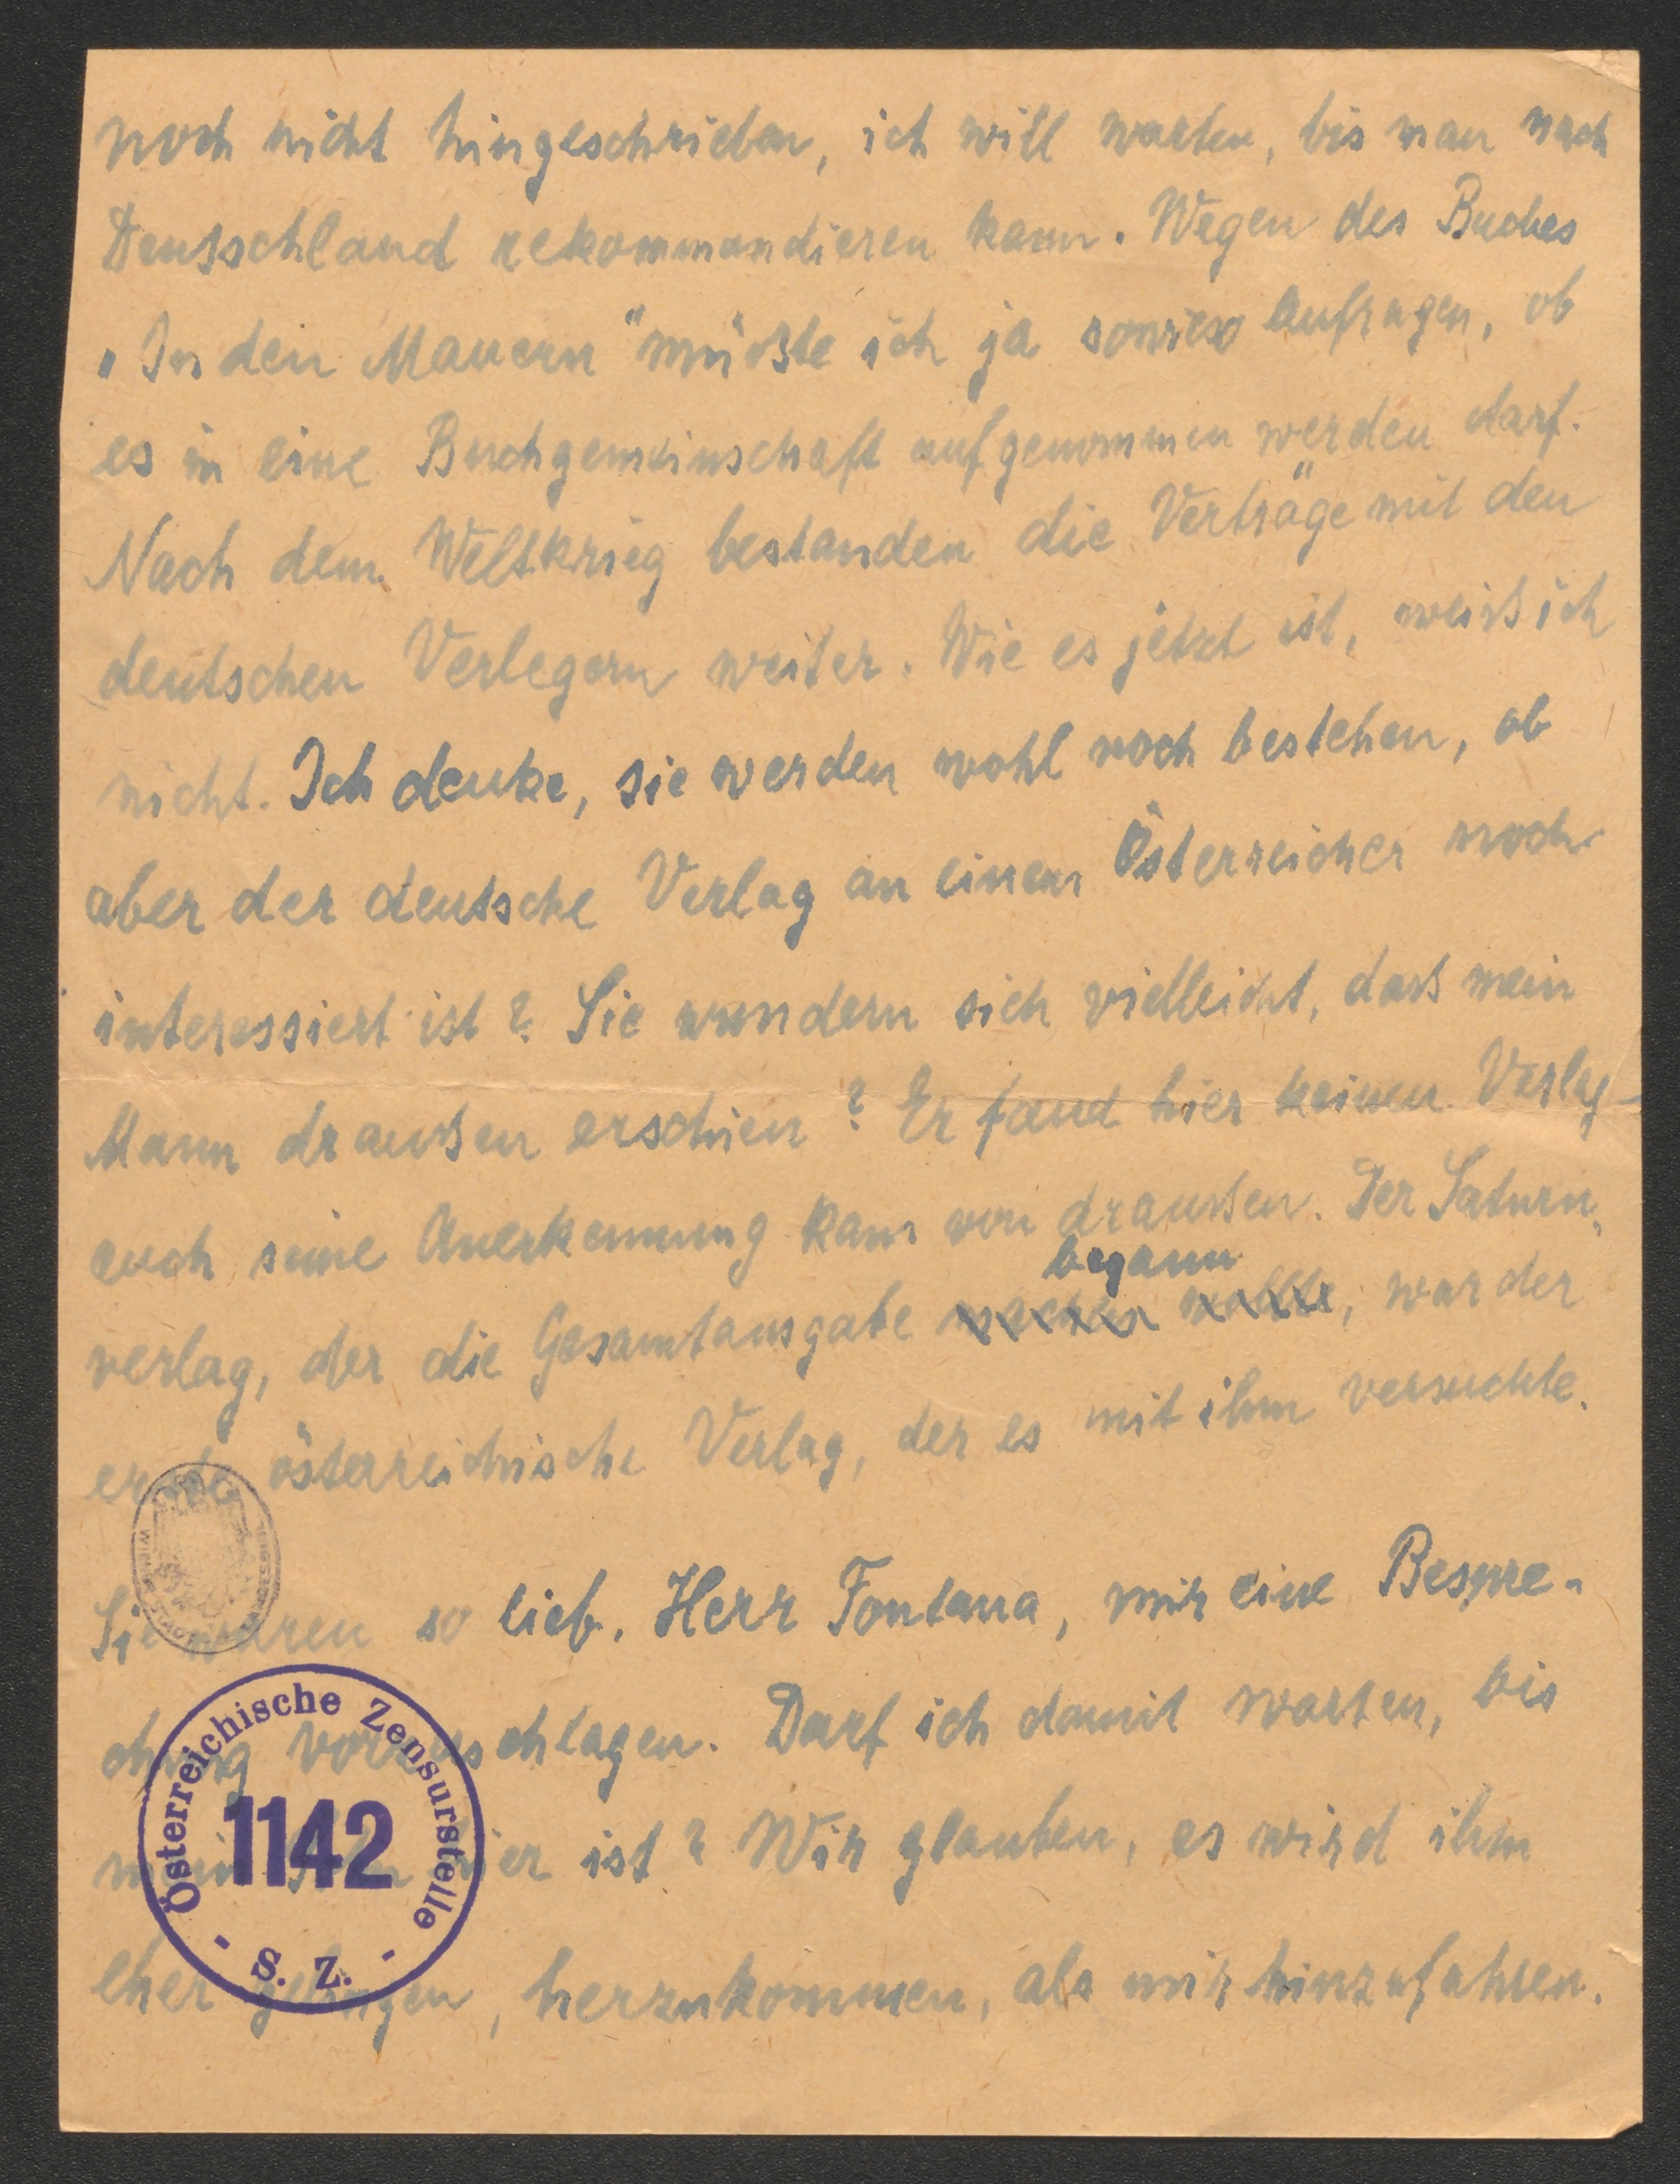 noch nicht hingeschrieben, ich will warten, bis man nach
Deutschland rekommandieren kann. Wegen des Buches
„In den Mauern" müßte ich ja sowieso anfragen, ob
es in eine Buchgemeinschaft aufgenommen werden darf.
Nach dem Weltkrieg bestanden die Verträge mit den
deutschen Verlegern weiter. Wie es jetzt ist, weiß ich
nicht. Ich denke, sie werden wohl noch bestehen, ob
aber der deutsche Verlag an einem Österreicher noch
interessiert ist? Sie wundern sich vielleicht, daß mein
Mann draußen erschien? Er fand hier keinen Verlag
auch seine Anerkennung kam von draußen. Der Saturn-
begann
verlag, der die Gesamtausgabe machen wollte, war der
erste österreichische Verlag, der es mit ihm versuchte.
Sie waren so lieb, Herr Fontana, mir eine Bespre-
chung vorzuschlagen. Darf ich damit warten, bis
mein hier ist? Wir glauben, es wird ihm
eher gelingen, herzukommen, als mir hinzufahren.
Österreichische Zensurstelle
1142
- S. Z. -